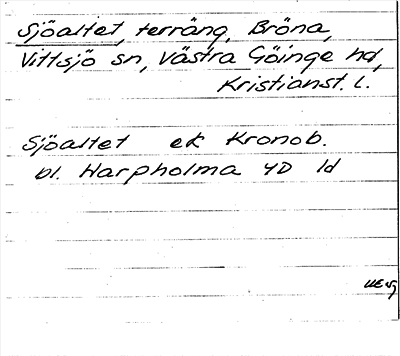 Sjöaltet, terräng, Bröna,
Vittsjö sn, Västra Göinge hd,
Kristianst. l.
Sjöaltet ek Kronob.
bl. Harpholma 4D 1d